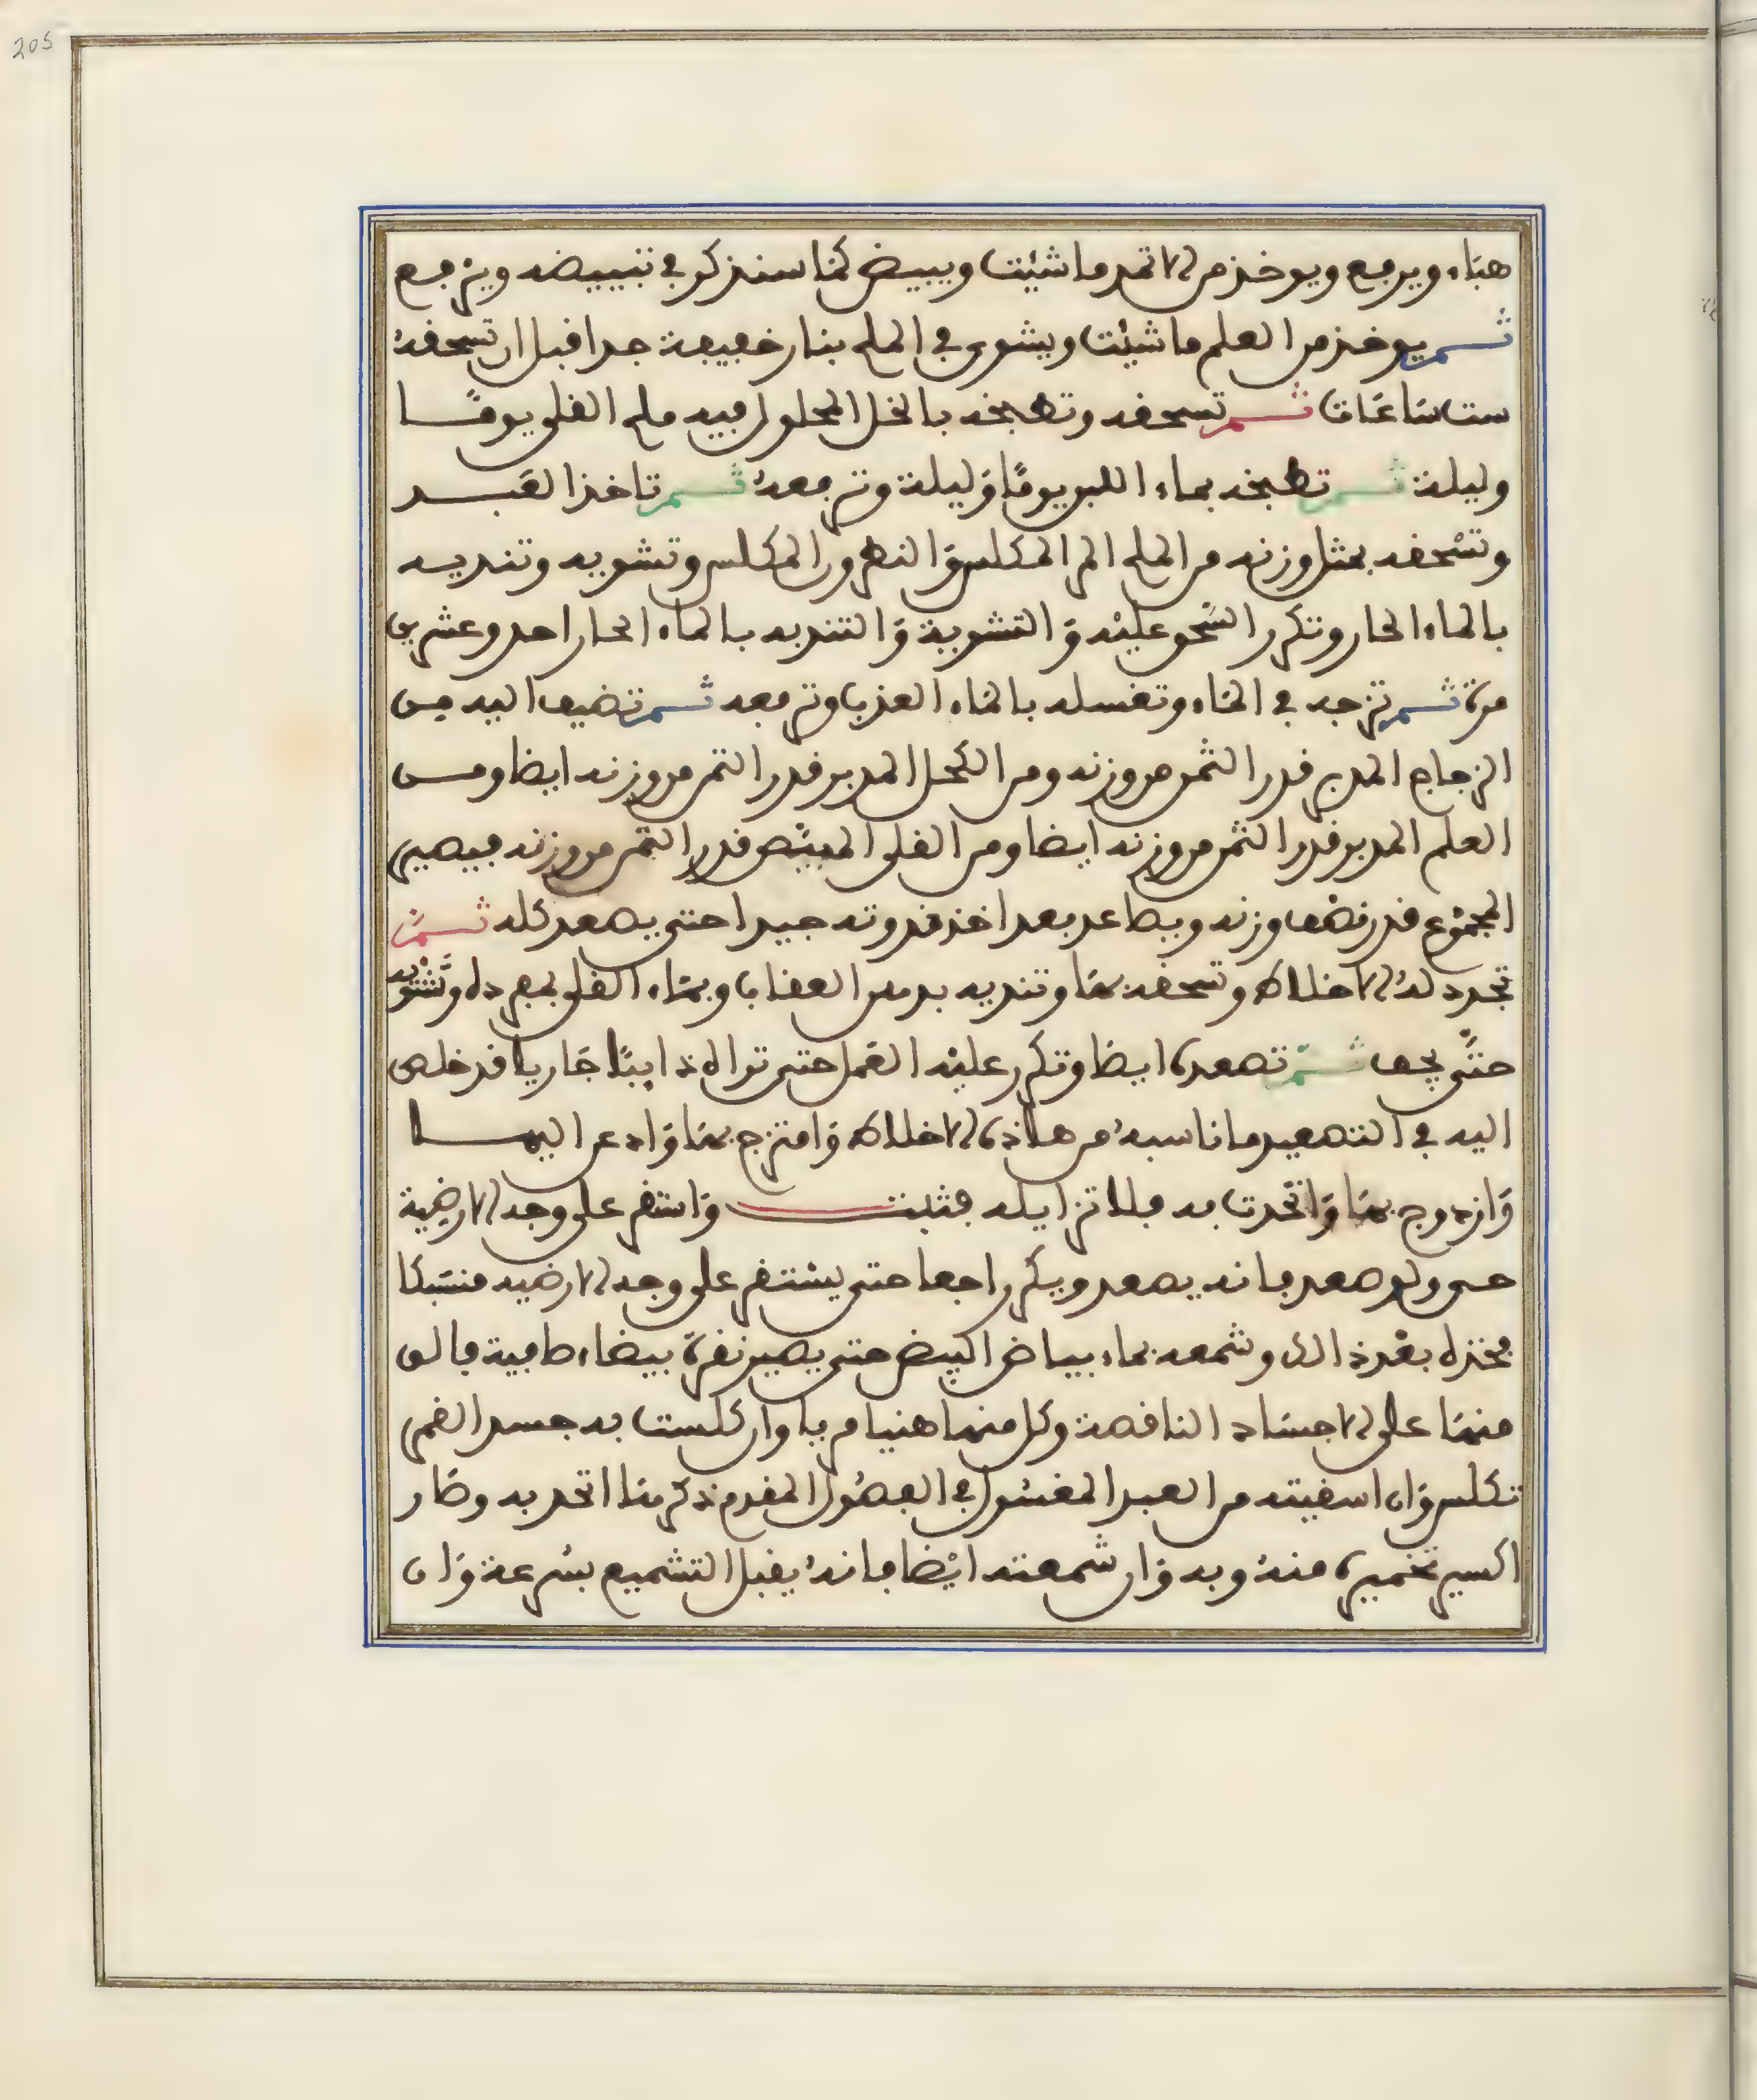 205
هباء ويرفع ويوخذ من الاثمد ما شيت ويبيض كما سنذكر في تبييضه ويرفع
ثم يوخذ من العلم ما شيت ويشوى في الملح بنار خفيفة جدا قبل ان تسحقه
ست ساعات ثم تسحقه وتطبخه بالخل المحلول فيه ملح القلي يوما
وليلة ثم تطبخه بماء اللبن يوما وليلة وترفعه ثم تاخذ العبد
وتسحقه بمثل وزنه من الملح المر المكلس والنطرون المكلس وتشويه وتنديه
بالماء الحار وتكرر السحق عليه والتشوية والتنديه بالماء الحار احد وعشرين
مرة ثم تزجه في الماء وتغسله بالماء العذب وترفعه ثم تضيف اليه من
الزجاج المدبر قدر الثمن من وزنه ومن الكحل المدبر قدر الثمن من وزنه ايضا ومن
العلم المدبر قدر الثمن من وزنه ايضا ومن القلي المبيض قدر الثمن من وزنه فيصير
المجموع قدر نصف وزنه ويصاعد بعد اخذ قدوته جيدا حتى يصعد كله ثم
تجدد له الاخلاط وتسحقه بها وتنديه بدهن العقاب وبماء القلي بمفرده وتشويه
حتى يجف ثم تصعده ايضا وتكرر عليه العمل حتى تراه ذايبا جاريا قد خلص
اليه في التصعيد ما ناسبه من هاذه الاخلاط وامتزج بها واذعن اليها
وازدوج بها واتحدت به فلا تزايله فثبت واستقر على وجه الارضية
حي ولو صعد فانه يصعد ويكر راجعا حتى يستقر على وجه الارضيه منسبكا
فخذه بعد ذالك وشمعه بماء بياض البيض حتى يصير نقرة بيضاء صافية فالق
منها على الاجساد الناقصة وكل منها هنيا مريا وان كلست به جسد القمر
تكلس وان اسقيته من العبد المغسول في الفصول المقدم ذكرها اتحد به وصار
اكسير تخميره منه وبه وان شمعته ايضا فانه يقبل التشميع بسرعة وان